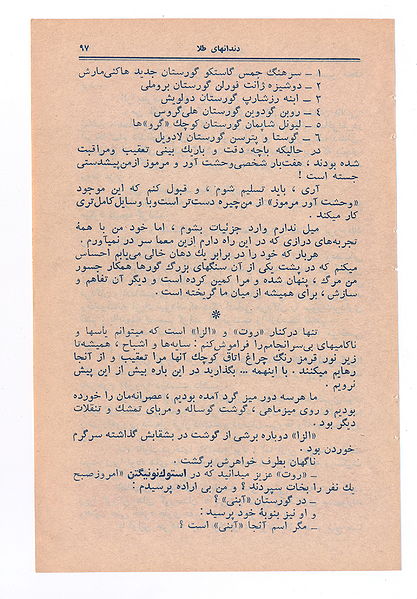 دندانهای طلا ۹۷
۱ ـ سرهنگ جمس گاستکو گورستان جدید هاکنی‌مارش
۲ ـ دوشیزه ژانت فورلن گورستان بروملی
۳ ـ ابنه رزشارپ گورستان دولویش
۴ ـ روبن گودوین گورستان هلی‌گروس
۵ ـ لیونل شاپمان گورستان کوچك «گرو»ها
۶ ـ گوستا و پترسن گورستان لادویل
در حالیکه باچه دقت و باریك بینی تعقیب ومراقبت
شده بودند ، هفت‌بار شخصی‌وحشت آور و مرموز ازمن‌پیشدستی
جسته است !
آری ، باید تسلیم شوم ، و قبول کنم که این موجود
«وحشت آور مرموز» از من‌چیره دست‌تر است‌وبا وسایل‌کامل‌تری
کار میکند .
میل ندارم وارد جزئیات بشوم ، اما خود من با همهٔ
تجربه‌های درازی که در این راه دارم ازین معما سر در نمیآورم .
هربار که خود را در برابر یك دهان خالی می‌یابم احساس
میکنم که در پشت یکی از آن سنگهای بزرگ گورها همکار جسور
من مرگ ، پنهان شده و مرا کمین کرده است و دیگر آن تفاهم و
سازش ، برای همیشه از میان ما گریخته است .
*
تنها درکنار «روت» و «الزا» است که میتوانم یأسها و
ناکامیهای بی‌سرانجامم‌را فراموش‌کنم : سایه‌ها و اشباح ، همیشه‌تا
زیر نور قرمز رنگ چراغ اتاق کوچك آنها مرا تعقیب و از آنجا
رهایم میکنند . با اینهمه ... بگذارید در این باره بیش از این پیش
نرویم .
ما هرسه دور میز گرد آمده بودیم ، عصرانه‌مان را خورده
بودیم و روی میزماهی ، گوشت گوساله و مربای تمشك و تنقلات
دیگر بود .
«الزا» دوباره برشی از گوشت در بشقابش گذاشته سرگرم
خوردن بود .
ناگهان بطرف خواهرش برگشت .
ـ «روت» عزیز میدانید که در استوك‌نونیگتن «امروزصبح
یك نفر را بخاك سپردند ؟ و من بی اراده پرسیدم :
ـ در گورستان «آبنی» ؟
و او نیز بنوبهٔ خود پرسید :
ـ مگر اسم آنجا «آبنی» است ؟